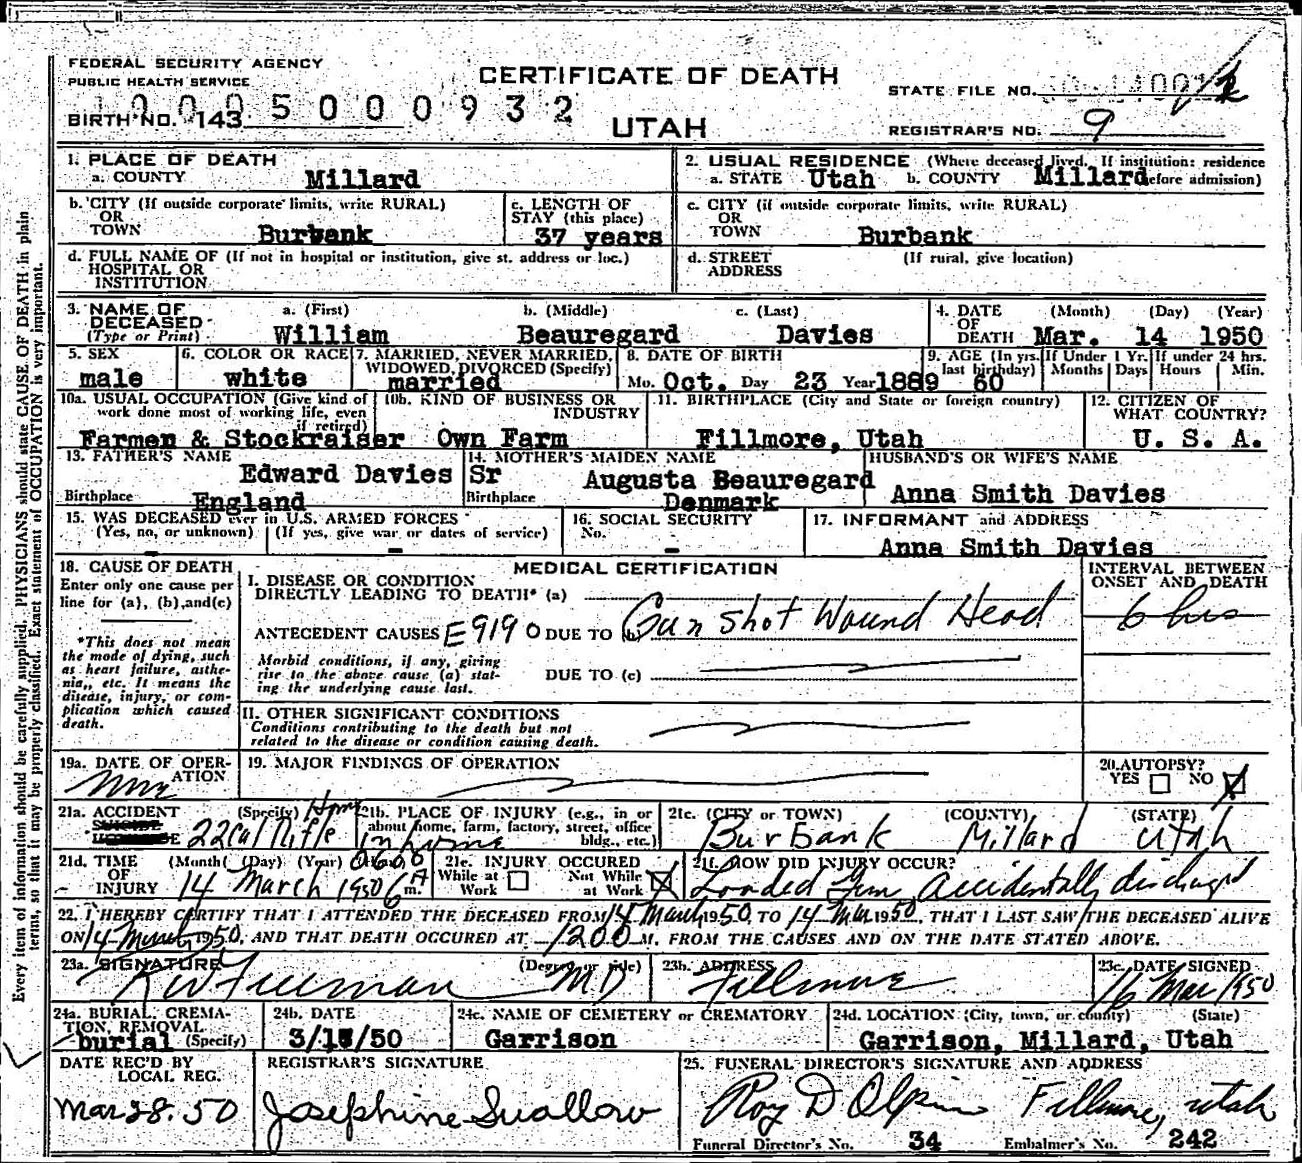 FEDERAL SECURITY AGENCY
PUBLIC HEALTH SERVICE
CERTIFICATE OF DEATH
STATE FILE NO.
BIRTH NO. 143
5 0 0 0 9 3 2
UTAH
REGISTRAR'S NO. 9
1. PLACE OF DEATH
a. COUNTY Millard
2. USUAL RESIDENCE (Where deceased lived. If institution: residence
a. STATE Utah b. COUNTY Millard before admission)
b. CITY (If outside corporate limits, write RURAL)
OR
TOWN Burbank
c. LENGTH OF
STAY (this place)
37 years
c. CITY (if outside corporate limits, write RURAL)
OR
TOWN Burbank
d. FULL NAME OF (If not in hospital or institution, give st. address or loc.)
HOSPITAL OR
INSTITUTION
d. STREET (If rural, give location)
ADDRESS
3. NAME OF
DECEASED
(Type or Print)
a. (First) b. (Middle) c. (Last)
William Beauregard Davies
4. DATE (Month) (Day) (Year)
OF
DEATH Mar. 14 1950
5. SEX
male
6. COLOR OR RACE
white
7. MARRIED, NEVER MARRIED,
WIDOWED, DIVORCED (Specify)
married
8. DATE OF BIRTH
Mo. Oct. Day 23 Year 1889
9. AGE (In yrs.
last birthday) 60
If Under 1 Yr.
Months Days
If under 24 hrs.
Hours Min.
10a. USUAL OCCUPATION (Give kind of
work done most of working life, even
if retired)
Farmer & Stockraiser
10b. KIND OF BUSINESS OR
INDUSTRY
Own Farm
11. BIRTHPLACE (City and State or foreign country)
Fillmore, Utah
12. CITIZEN OF
WHAT COUNTRY?
U. S. A.
13. FATHER'S NAME
Edward Davies Sr
Birthplace England
14. MOTHER'S MAIDEN NAME
Augusta Beauregard
Birthplace Denmark
HUSBAND'S OR WIFE'S NAME
Anna Smith Davies
15. WAS DECEASED ever in U.S. ARMED FORCES
(Yes, no, or unknown) (If yes, give war or dates of service)
- -
16. SOCIAL SECURITY
No. -
17. INFORMANT and ADDRESS
Anna Smith Davies
18. CAUSE OF DEATH
Enter only one cause per
line for (a), (b), and (c)
*This does not mean
the mode of dying, such
as heart failure, asthe-
nia, etc. It means the
disease, injury, or com-
plication which caused
death.
MEDICAL CERTIFICATION
INTERVAL BETWEEN
ONSET AND DEATH
I. DISEASE OR CONDITION
DIRECTLY LEADING TO DEATH* (a)
ANTECEDENT CAUSES E9190 DUE TO (b) Gun shot Wound Head
6 hrs
Morbid conditions, if any, giving
rise to the above cause (a) stat-
ing the underlying cause last.
DUE TO (c)
II. OTHER SIGNIFICANT CONDITIONS
Conditions contributing to the death but not
related to the disease or condition causing death.
19a. DATE OF OPER-
ATION
19. MAJOR FINDINGS OF OPERATION
20. AUTOPSY?
YES NO
21a. ACCIDENT (Specify) Home
22 Cal Rifle
21b. PLACE OF INJURY (e.g., in or
about home, farm, factory, street, office
bldg., etc.)
In home
21c. (CITY or TOWN) (COUNTY) (STATE)
Burbank Millard Utah
21d. TIME (Month) (Day) (Year)
OF
INJURY 14 March 1950 6 A m.
21e. INJURY OCCURED
While at Not While
Work at Work
21f. HOW DID INJURY OCCUR?
Loaded Gun Accidentally discharged
22. I HEREBY CERTIFY THAT I ATTENDED THE DECEASED FROM 14 March 1950, TO 14 Mar 1950, THAT I LAST SAW THE DECEASED ALIVE
ON 14 March 1950, AND THAT DEATH OCCURED AT 1200 M. FROM THE CAUSES AND ON THE DATE STATED ABOVE.
23a. SIGNATURE (Degree or title)
Freeman MD
23b. ADDRESS
Fillmore
23c. DATE SIGNED
16 Mar 1950
24a. BURIAL, CREMA-
TION, REMOVAL
burial (Specify)
24b. DATE
3/15/50
24c. NAME OF CEMETERY or CREMATORY
Garrison
24d. LOCATION (City, town, or county) (State)
Garrison, Millard, Utah
DATE REC'D BY
LOCAL REG.
Mar 28. 50
REGISTRAR'S SIGNATURE
Josephine Swallow
25. FUNERAL DIRECTOR'S SIGNATURE AND ADDRESS
Roy D Olpin Fillmore, Utah
Funeral Director's No. 34 Embalmer's No. 242
Every item of information should be carefully supplied. PHYSICIANS should state CAUSE OF DEATH in plain
terms, so that it may be properly classified. Exact statement of OCCUPATION is very important.